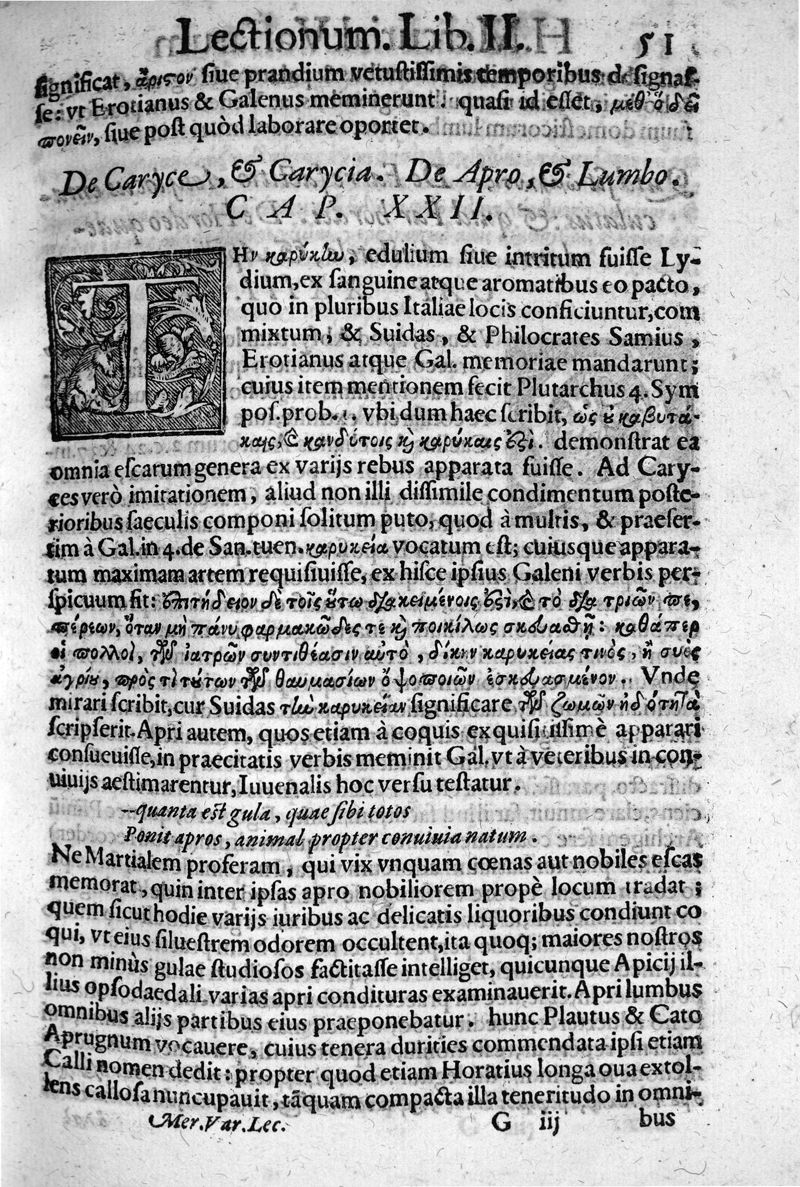 Lectionum. Lib. II. 51
significat, ἄριστον siue prandium vetustissimis temporibus designas
se: vt Erotianus & Galenus meminerunt. quasi id esset, μεθ' ὃ δεῖ
πονεῖν, siue post quòd laborare oportet.
De Caryce, & Carycia. De Apro, & Lumbo.
CAP. XXII.
THν καρύκην, edulium siue intritum fuisse Ly-
dium, ex sanguine atque aromatibus eo pacto,
quo in pluribus Italiae locis conficiuntur, com
mixtum; & Suidas, & Philocrates Samius,
Erotianus atque Gal. memoriae mandarunt;
cuius item mentionem fecit Plutarchus 4. Sym
pos. prob. 1. vbi dum haec scribit, ὡς ὁ καβυτά-
καις, καὶ κανδύτοις καὶ καρύκαις ἐπὶ. demonstrat ea
omnia escarum genera ex varijs rebus apparata fuisse. Ad Cary-
ces verò imitationem, aliud non illi dissimile condimentum poste-
rioribus saeculis componi solitum puto, quod à multis, & praeser-
tim à Gal. in 4. de San. tuen. καρυκεία vocatum est; cuiusque appara-
tum maximam artem requisiuisse, ex hisce ipsius Galeni verbis per-
spicuum fit: ἐπιτήδειον δὲ τοῖς οὕτω διακειμένοις ἐστὶ, καὶ τὸ διὰ τριῶν πε,
πέρεων, ὅταν μὴ πάνυ φαρμακῶδες τε καὶ ποικίλως σκευασθῇ: καθάπερ
οἱ πολλοὶ, τῶν ἰατρῶν συντιθέασιν αὐτὸ, δίκην καρυκείας τινὸς, ἢ συὸς
ἀγρίου, πρὸς τὶ τούτων τῶν θαυμασίων ὀψοποιῶν ἐσκευασμένον. Vnde
mirari scribit, cur Suidas τὴν καρυκείαν significare τῶν ζωμῶν ἡδύτητα
scripserit. Apri autem, quos etiam à coquis exquisitissimè apparari
consueuisse, in praecitatis verbis meminit Gal. vt à veteribus in con-
uiuijs aestimarentur, Iuuenalis hoc versu testatur.
--quanta est gula, quae sibi totos
Ponit apros, animal propter conuiuia natum.
Ne Martialem proferam, qui vix vnquam cœnas aut nobiles escas
memorat, quin inter ipsas apro nobiliorem propè locum tradat;
quem sicut hodie varijs iuribus ac delicatis liquoribus condiunt co
qui, vt eius siluestrem odorem occultent, ita quoq; maiores nostros
non minùs gulae studiosos factitasse intelliget, quicunque Apicij il-
lius opsodaedali varias apri condituras examinauerit. Apri lumbus
omnibus alijs partibus eius praeponebatur. hunc Plautus & Cato
Aprugnum vocauere, cuius tenera durities commendata ipsi etiam
Calli nomen dedit: propter quod etiam Horatius longa oua extol-
lens callosa nuncupauit, tãquam compacta illa teneritudo in omni-
Mer. Var. Lec. G iij bus